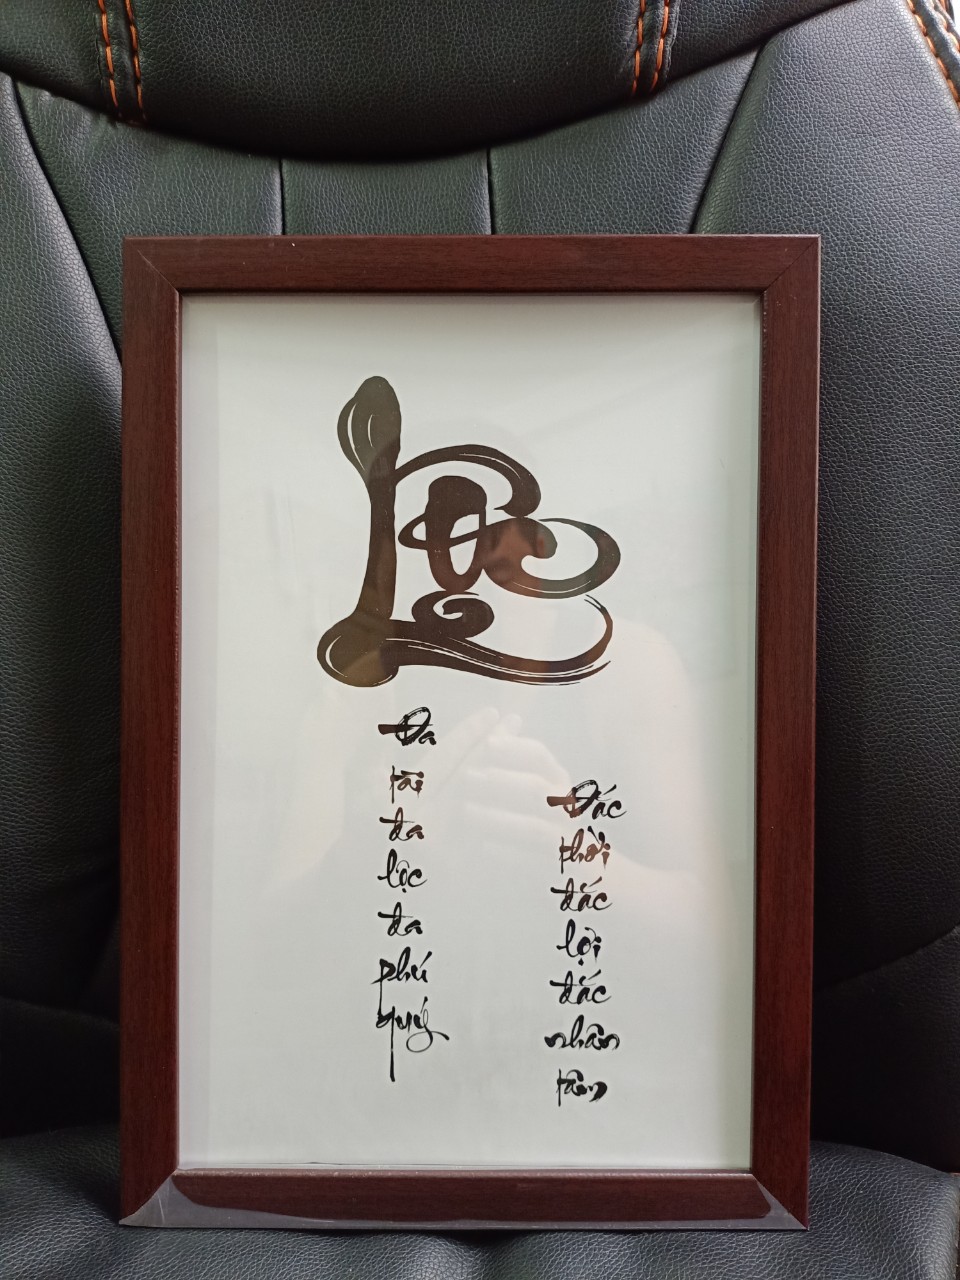 Lộc
Đa
tài
đa
lộc
đa
phú
quý
Đắc
thời
đắc
lợi
đắc
nhân
tâm